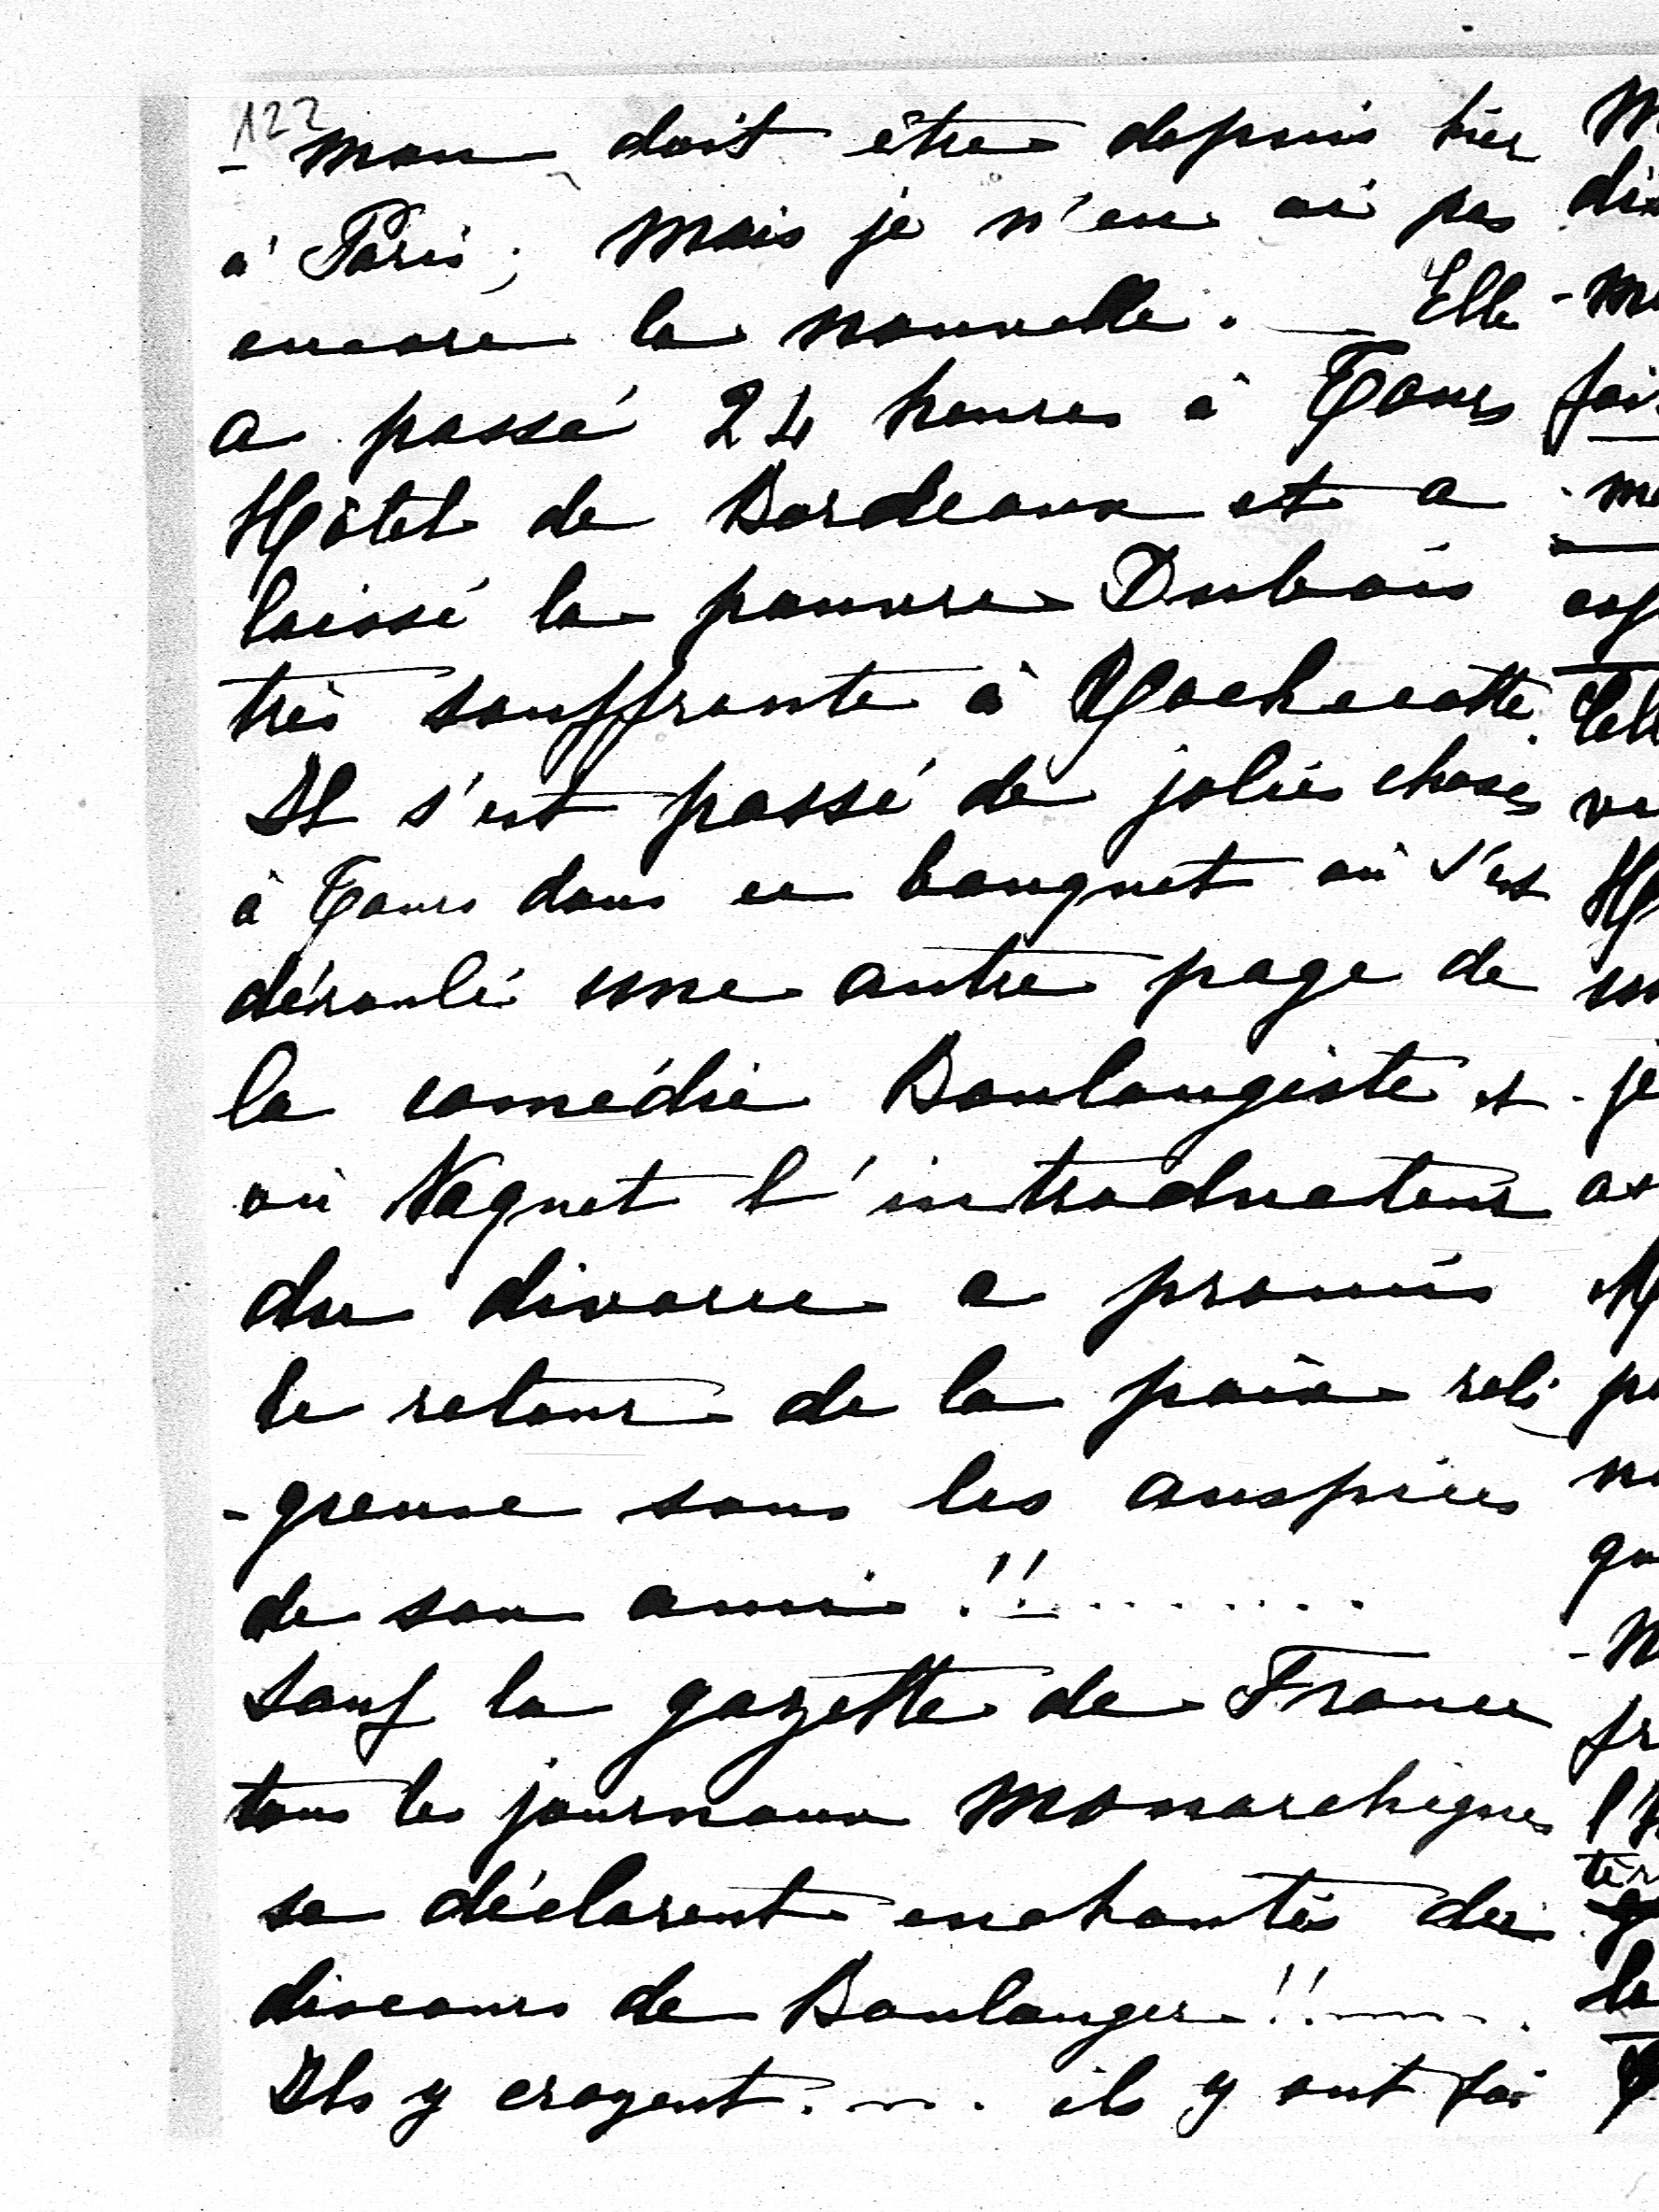 122
- man doit être depuis hier
à Paris ; mais je n'en ai pas
encore la nouvelle. _ Elle
a passé 24 heures à Tours
Hôtel de Bordeaux et a
laissé la pauvre Dubois
très souffrante à Rochecotte.
Il s'est passé de jolies choses
à Tours dans ce banquet où s'est
déroulé une autre page de
la comédie Boulangiste et
où Naquet l'introducteur
du divorce a promis
le retour de la paix reli
-gieuse sous les auspices
de son ami !! . . . . . . . .
Sauf la gazette de France
tous les journaux monarchiques
se déclarent enchantés du
discours de Boulanger !! ......
Ils y croyent . . . . ils y ont foi